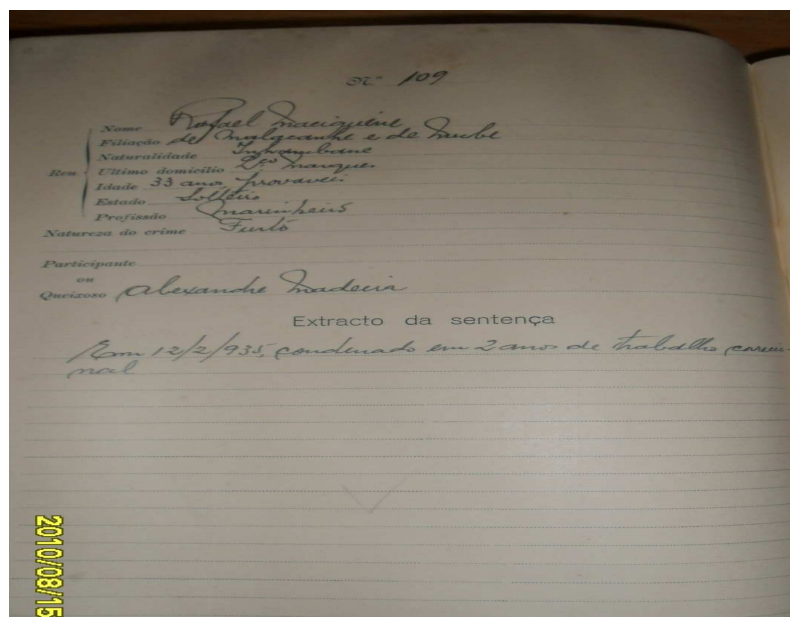 Nº 109
Nome Rafael
Filiação de e de
Naturalidade Inhambane
Reu Ultimo domicilio Lço Marques
Idade 33 anos provaveis
Estado Solteiro
Profissão Marinheiro
Natureza do crime Furto
Participante
ou
Queixoso Alexandre Madeira
Extracto da sentença
Em 12/2/935, condenado em 2 anos de trabalho correcio-
nal
2010/08/15